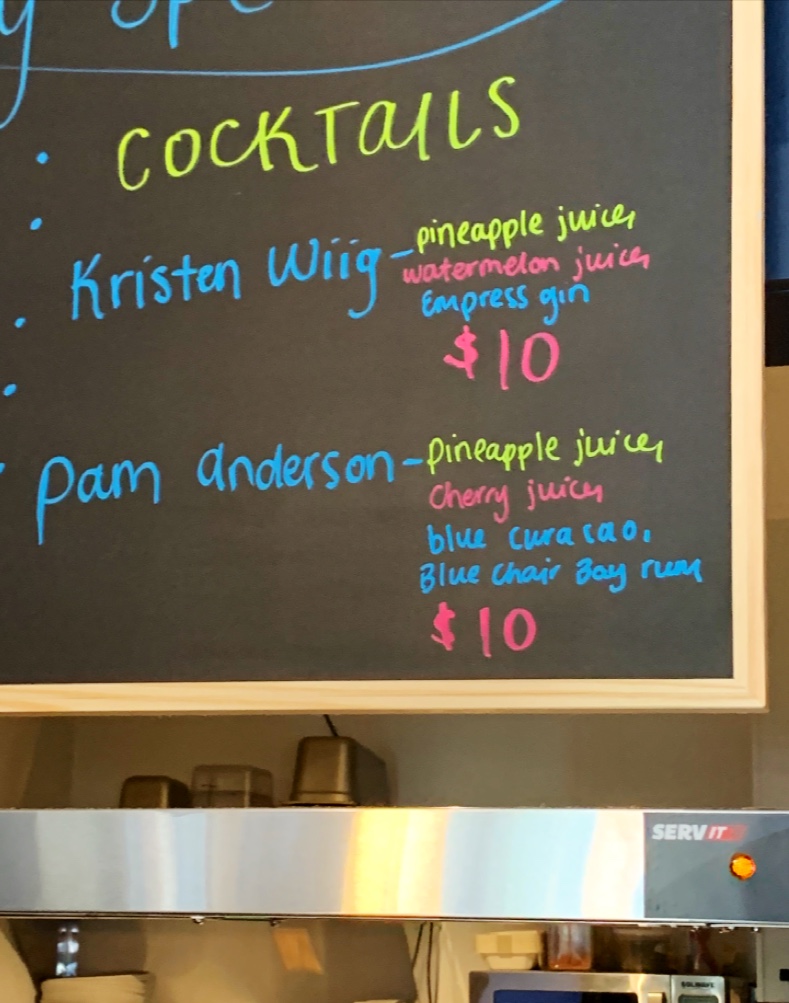 COCKTAILS
Kristen Wiig - pineapple juice,
watermelon juice,
Empress gin
$10
Pam Anderson - Pineapple juice,
Cherry juice,
blue curacao,
Blue Chair Bay rum
$10
SERVIT